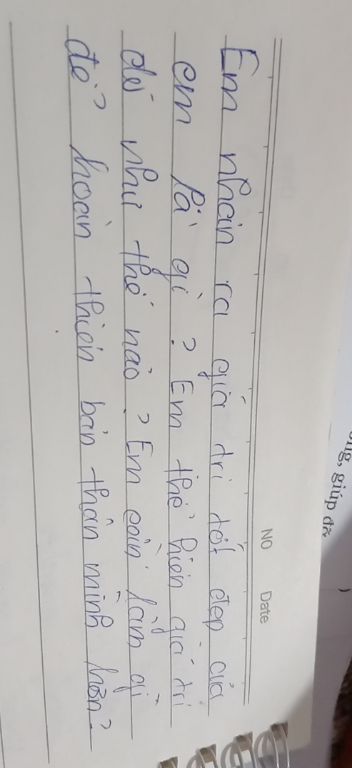 NO
Date
Em nhận ra giá trị tốt đẹp của
em là gì ? Em thể hiện giá trị
đó như thế nào ? Em cần làm gì
để hoàn thiện bản thân mình hơn ?
giúp đỡ